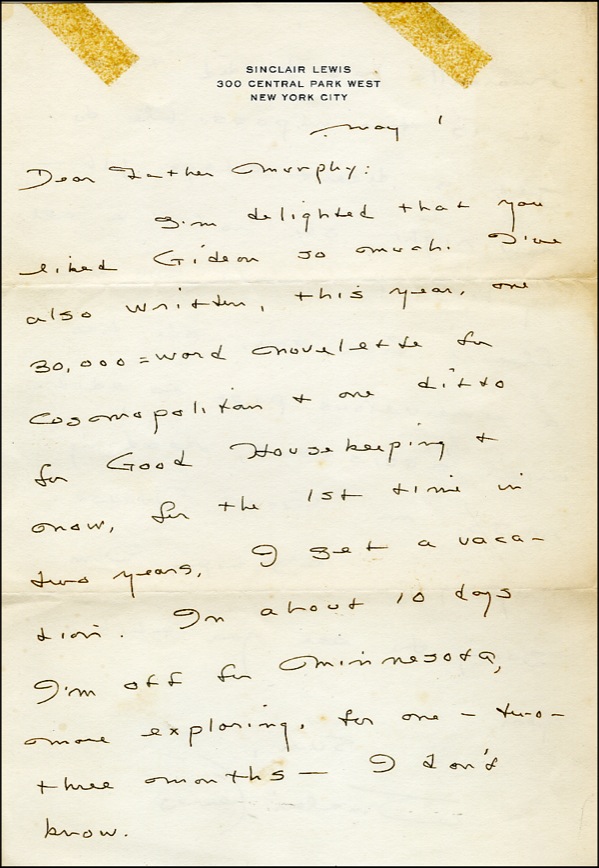 SINCLAIR LEWIS
300 CENTRAL PARK WEST
NEW YORK CITY
May 1
Dear Father Murphy:
I'm delighted that you
liked Gideon so much. I've
also written, this year, one
30,000=word novelette for
Cosmopolitan + one ditto
for Good Housekeeping +
now, for the 1st time in
two years, I get a vaca-
tion. In about 10 days
I'm off for Minnesota,
more exploring, for one - two -
three months — I don't
know.